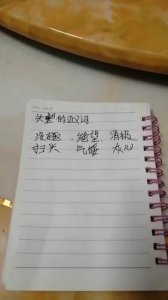 失望的近义词
没趣 绝望 消极
扫兴 气馁 灰心